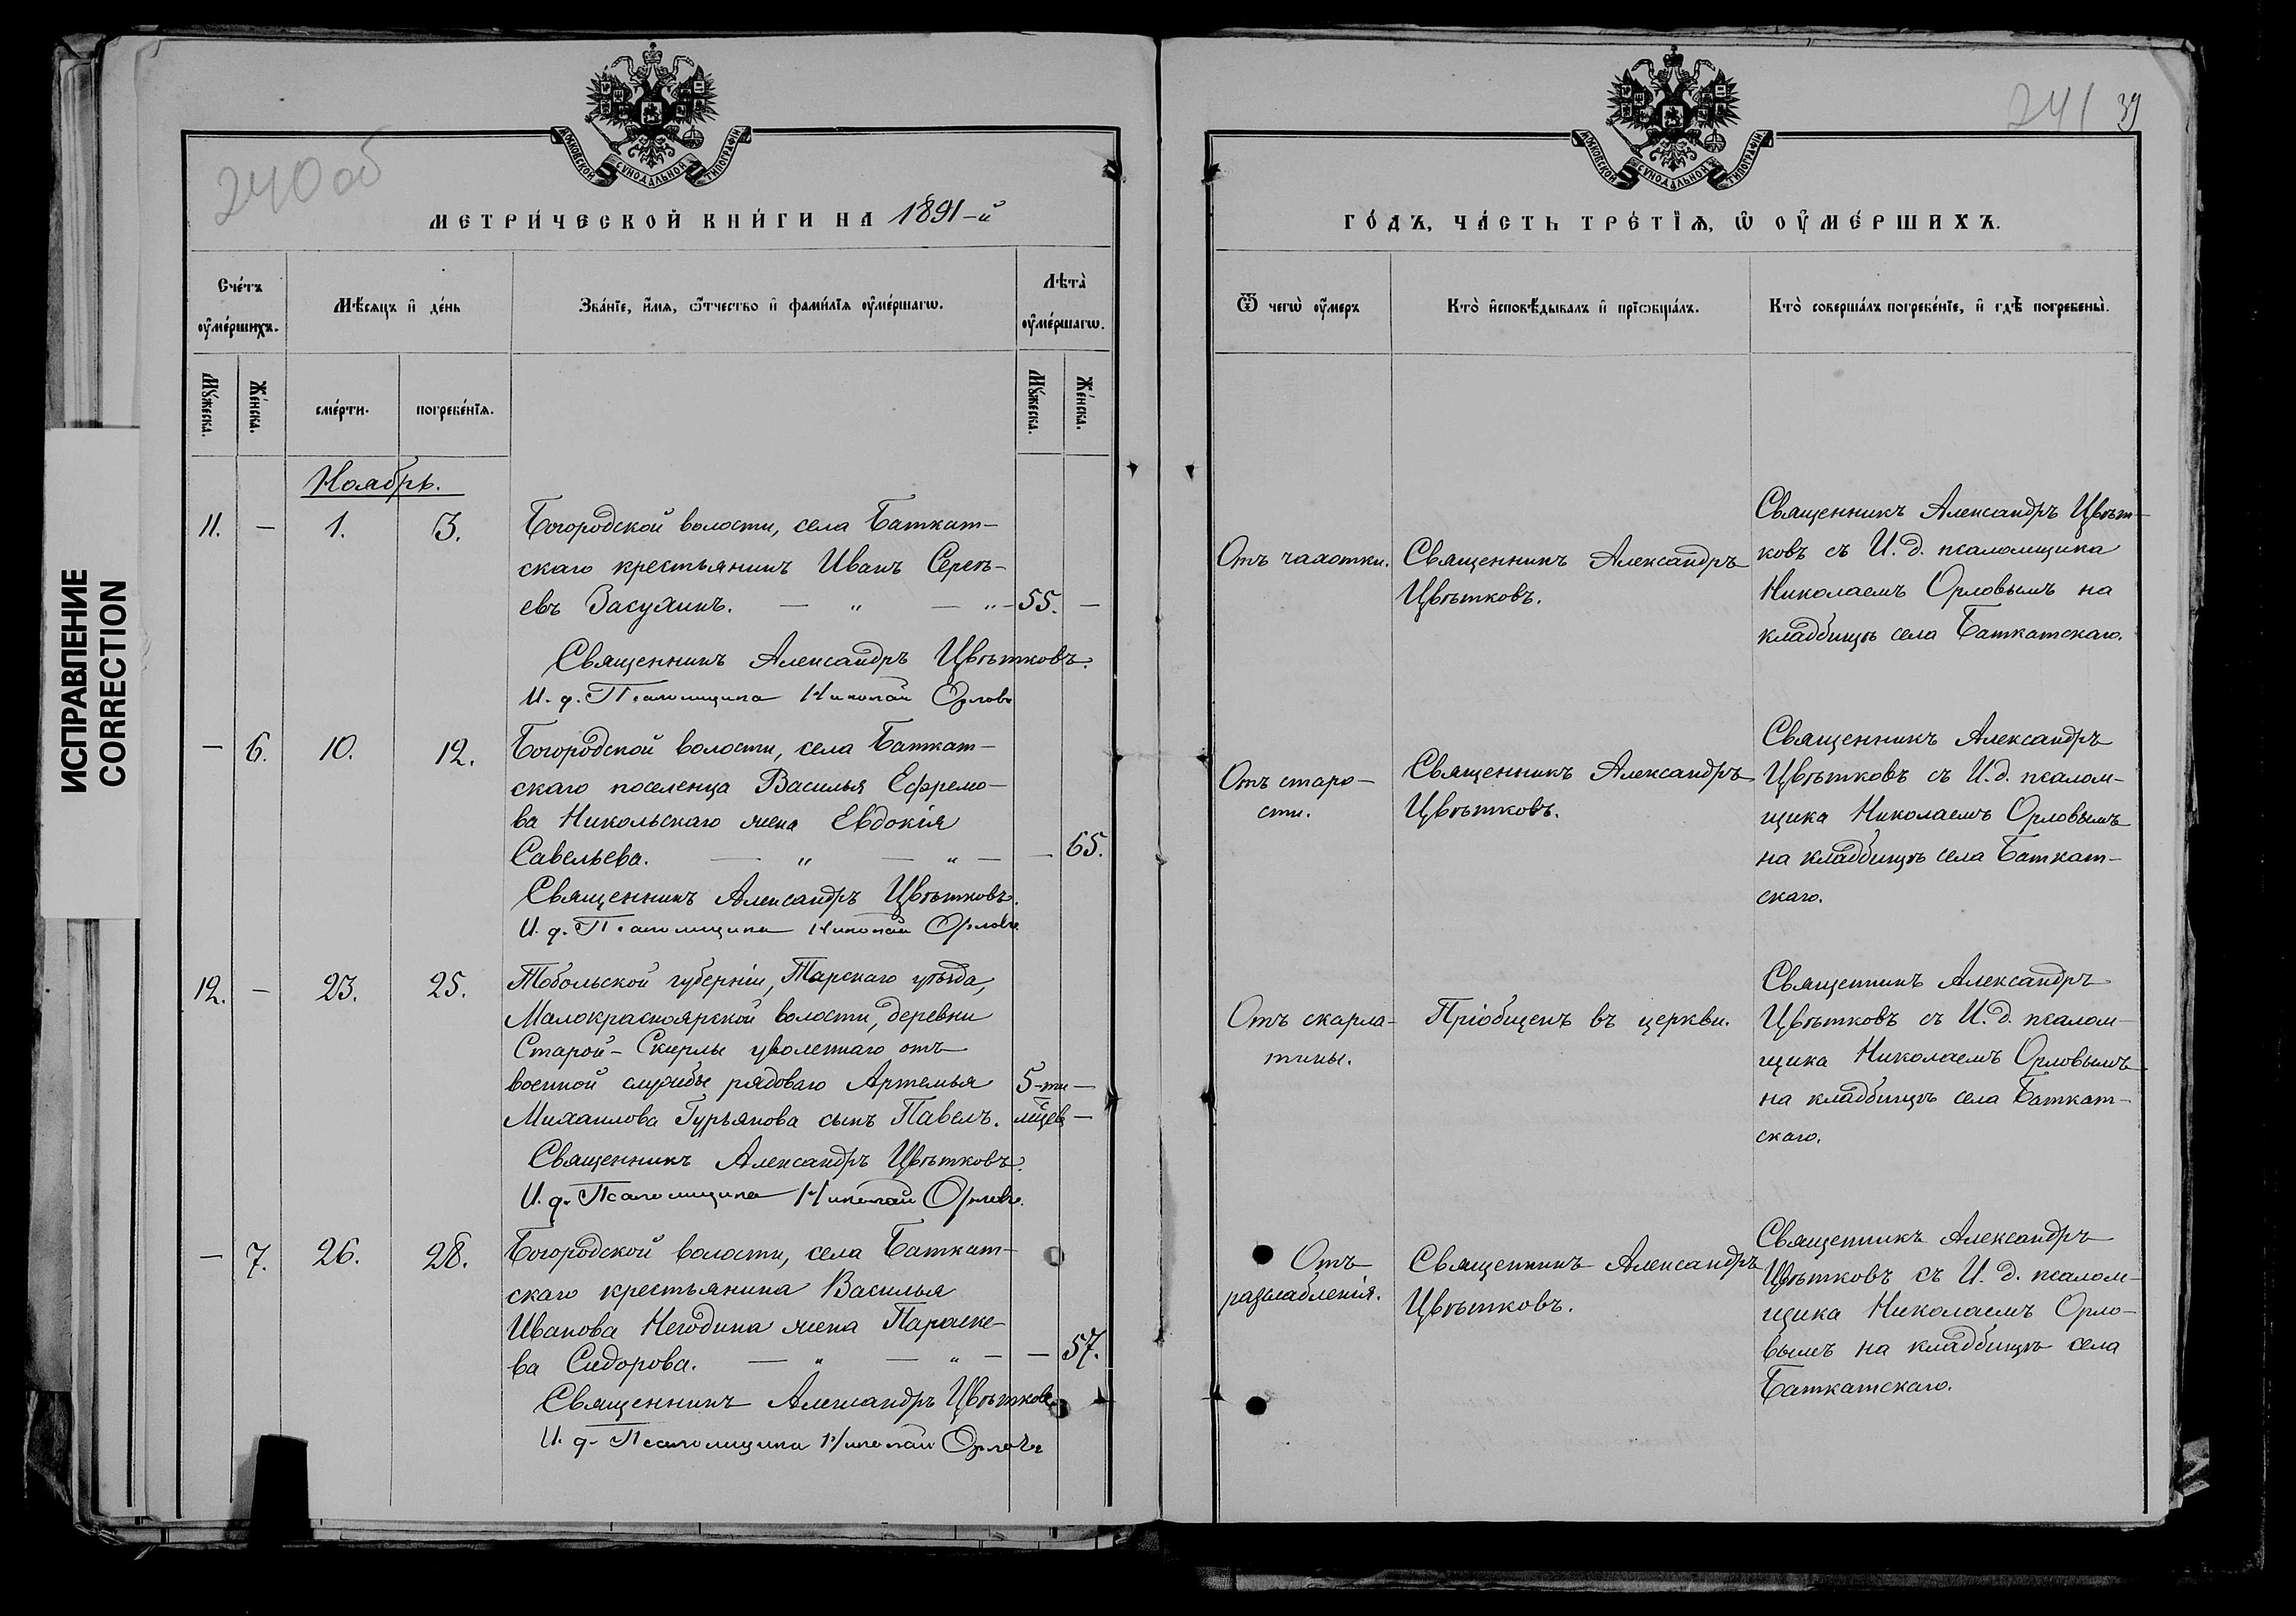 240 об
МОСКОВСКОЙ СѴНОДАЛЬНОЙ ТИПОГРАФІИ
МЕТРИ́ЧЕСКОЙ КНИ́ГИ НА 1891-й
Сче́тъ оу҆ме́ршихъ.
Мѣ́сяцъ и҆ де́нь
Зва́нїе, и҆́мя, ѻ҆́тчество и҆ фами́лїя оу҆ме́ршагѡ.
Лѣ̑та̀ оу҆ме́ршагѡ.
Мꙋ́жеска.
Же́нска.
сме́рти.
погребе́нїѧ.
Мꙋ́жеска.
Же́нска.
Ноябрь.
11. — 1. 3. Богородской волости, села Баткат-
скаго крестьянинъ Иванъ Сергѣ-
евъ Засухинъ. — " — " — 55. —
Священникъ Александръ Цвѣтковъ.
И. д. Псаломщика Николай Орловъ
— 6. 10. 12. Богородской волости, села Баткат-
скаго поселенца Василья Ефремо-
ва Никольскаго жена Евдокія
Савельева. — " — " — — 65.
Священникъ Александръ Цвѣтковъ.
И. д. Псаломщика Николай Орловъ
12. — 23. 25. Тобольской губерніи, Тарскаго уѣзда,
Малокрасноярской волости, деревни
Старой-Скирлы уволеннаго отъ
военной службы рядоваго Артемья 5-ти —
Михаилова Гурьянова сынъ Павелъ. мцев —
Священникъ Александръ Цвѣтковъ.
И. д. Псаломщика Николай Орловъ.
— 7. 26. 28. Богородской волости, села Баткат-
скаго крестьянина Василья
Иванова Негодина жена Параске-
ва Сидорова. — " — " — — 57.
Священникъ Александръ Цвѣтковъ
И. д. Псаломщика Николай Орловъ
241 39
МОСКОВСКОЙ СѴНОДАЛЬНОЙ ТИПОГРАФІИ
ГО́ДЪ, ЧА́СТЬ ТРЕ́ТЇѦ, Ѡ҆ ОУ҆МЕ́РШИХЪ.
Ѿ чегѡ̀ оу҆́меръ
Кто̀ и҆сповѣ́дывалъ и҆ прїѻбща́лъ.
Кто̀ соверша́лъ погребе́нїе, и҆ гдѣ̀ погребены̀.
Отъ чахотки.
Священникъ Александръ
Цвѣтковъ.
Священникъ Александръ Цвѣт-
ковъ съ И. д. псаломщика
Николаемъ Орловымъ на
кладбищѣ села Баткатскаго.
Отъ старо-
сти.
Священникъ Александръ
Цвѣтковъ.
Священникъ Александръ
Цвѣтковъ съ И. д. псалом-
щика Николаемъ Орловымъ
на кладбищѣ села Баткат-
скаго.
Отъ скарла-
тины.
Пріобщенъ въ церкви.
Священникъ Александръ
Цвѣтковъ съ И. д. псалом-
щика Николаемъ Орловымъ
на кладбищѣ села Баткат-
скаго.
Отъ
разслабленія.
Священникъ Александръ
Цвѣтковъ.
Священникъ Александръ
Цвѣтковъ съ И. д. псалом-
щика Николаемъ Орло-
вымъ на кладбищѣ села
Баткатскаго.
ИСПРАВЛЕНИЕ
CORRECTION